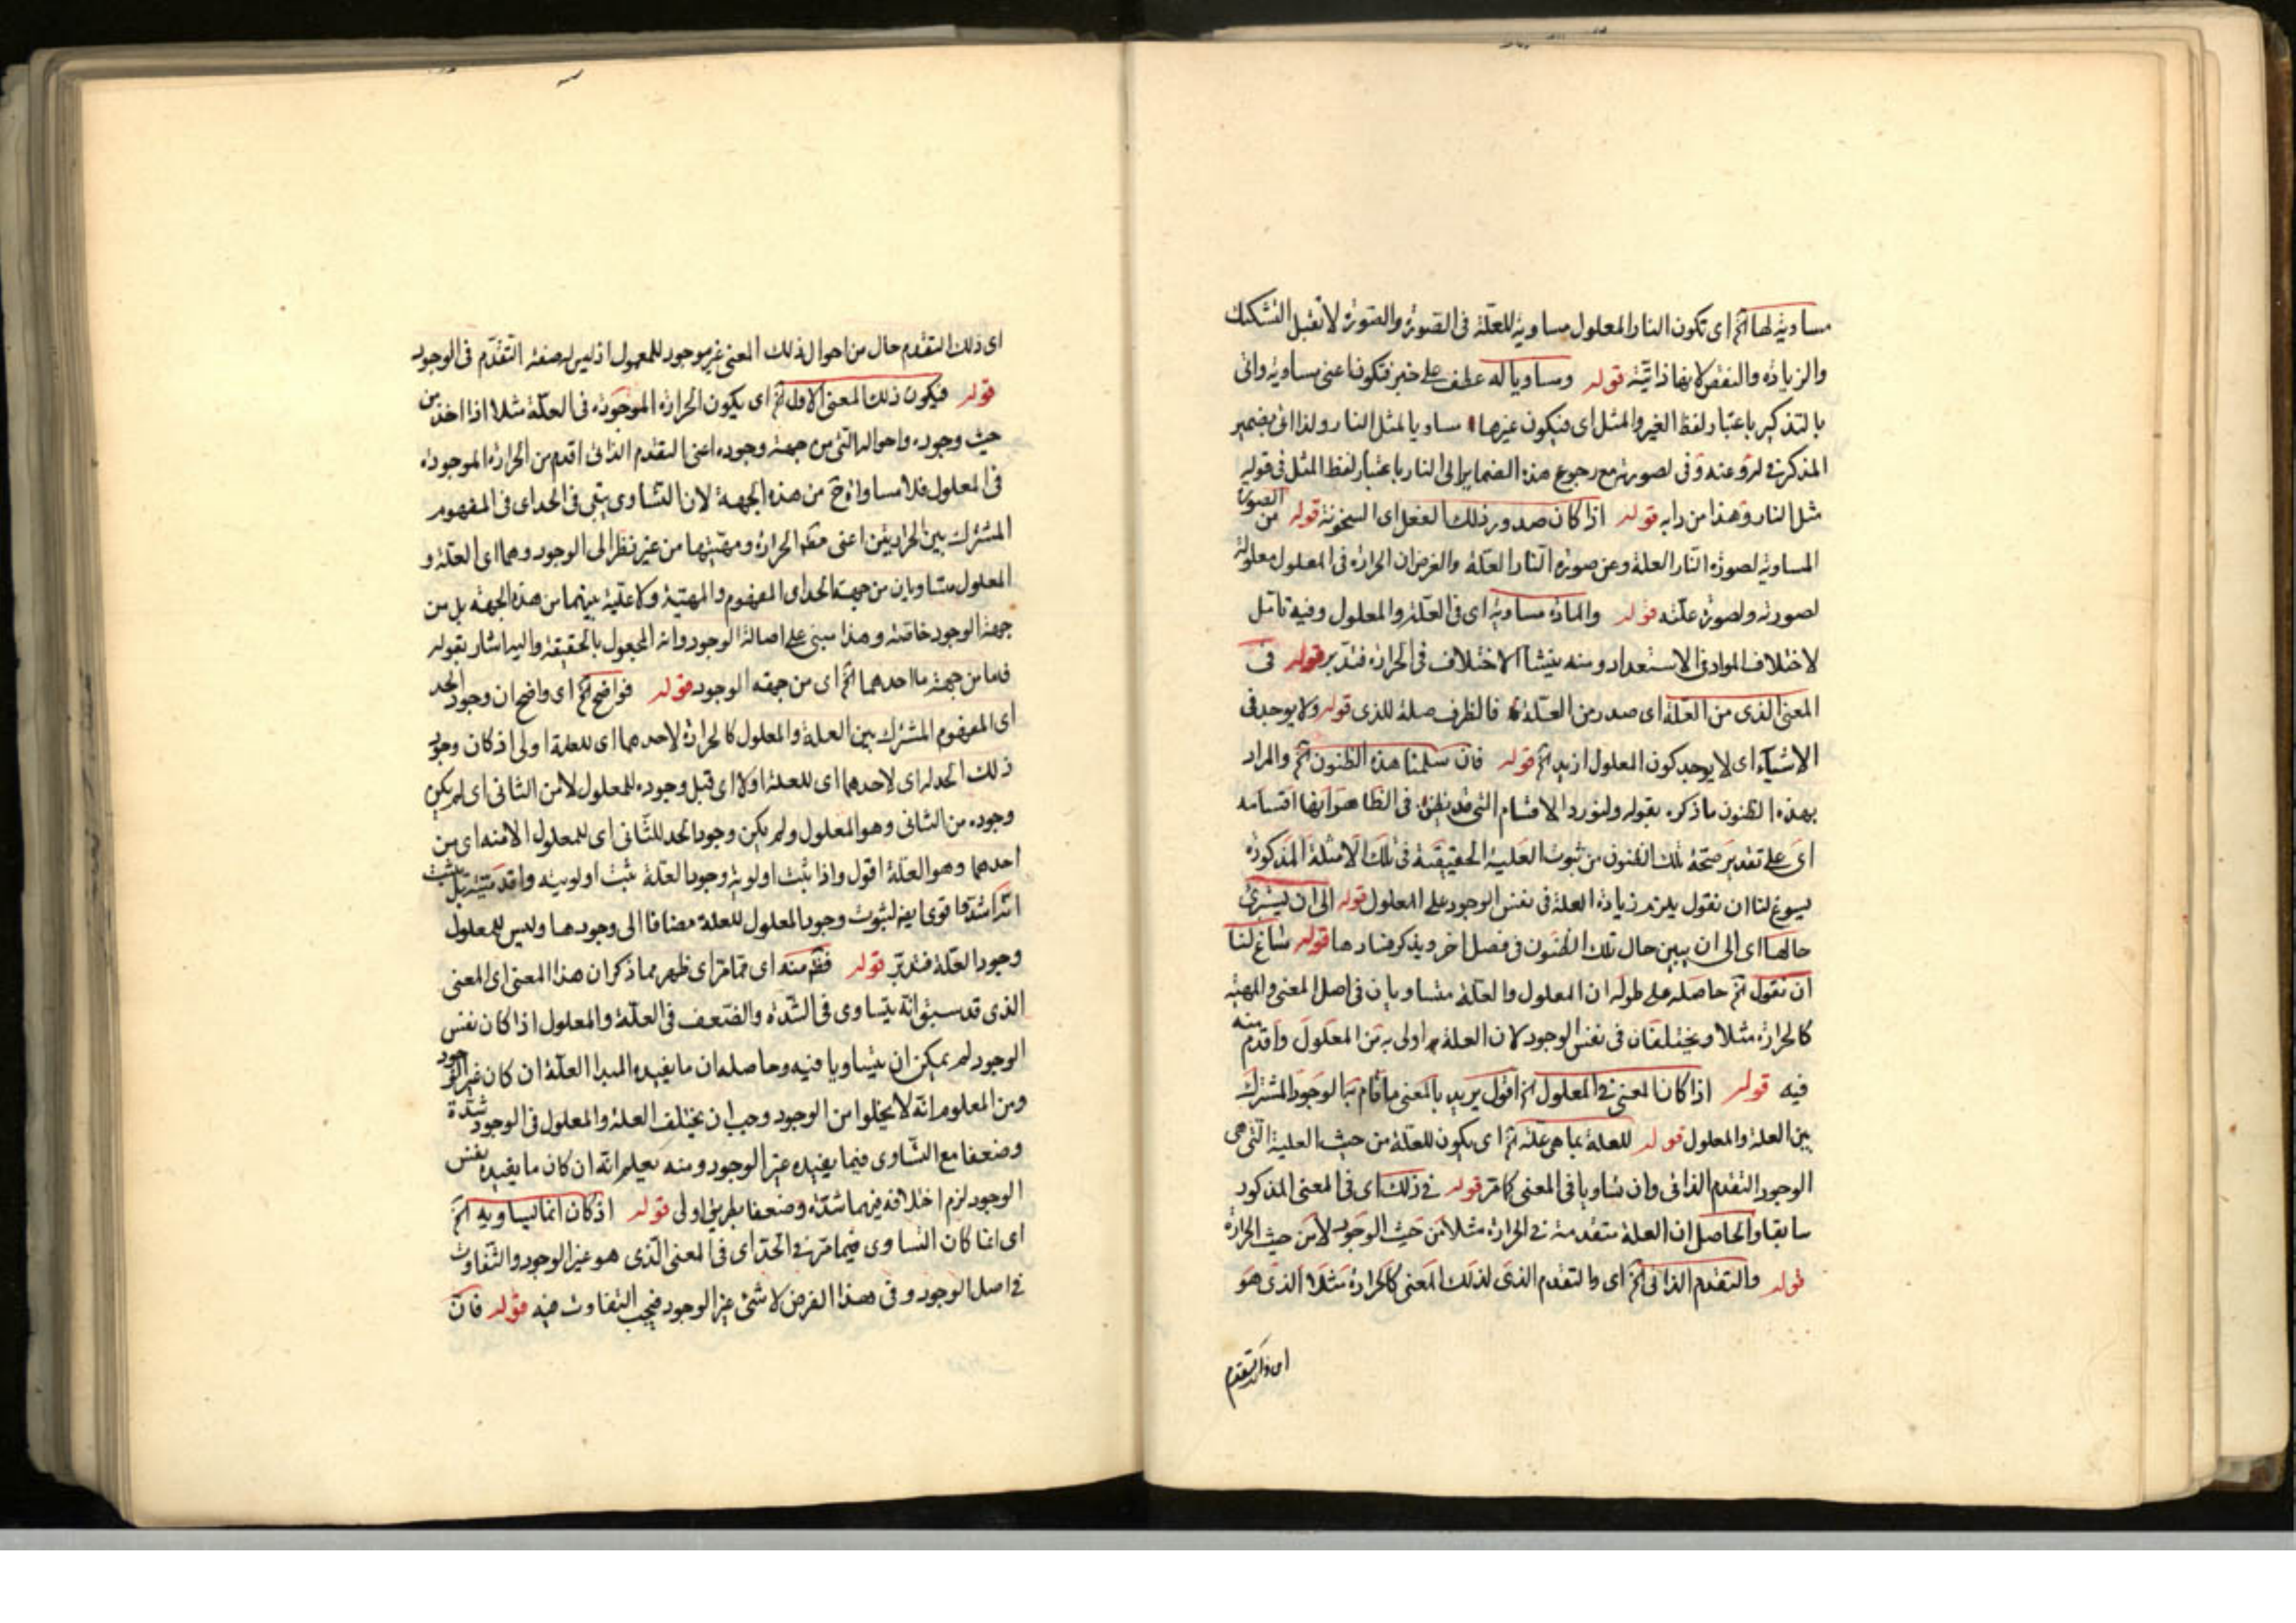 مساوية لها الخ اى تكون النار المعلول مساوية للعلة فى الصورة والصورة لا تقبل التشكيك
والزيادة والنقص لانها ذاتية قوله ومساويا له عطف على خبر فتكون اعنى مساوية واتى
بالتذكير باعتبار لفظ الغير والمثل اى فيكون غيرها مساويا لمثل النار ولذا اتى بضمير
المذكر فى له وعنه وفى لصورته مع رجوع هذه الضماير الى النار باعتبار لفظ المثل فى قوله
مثل النار وهذا من دابه قوله اذا كان صدور ذلك الفعل اى السخونة قوله من الصورة
المساوية لصورة النار العلة وعن صورة النار العلة والغرض ان الحرارة فى المعلول معلولة
لصورته ولصورة علته قوله والمادة مساوية اى فى العلة والمعلول وفيه تامل
لاختلاف المواد فى الاستعداد ومنه ينشا الاختلاف فى الحرارة فتدبر قوله فى
المعنى الذى من العلة اى صدر من العلة فالظرف صلة للذى قوله ولا يوجد فى
الاشياء اى لا يوجد كون المعلول ازيد الخ قوله فان سلمنا هذه الظنون الخ والمراد
بهذه الظنون ما ذكره بقوله ولنورد الاقسام التى قد يظن فى الظاهر انها اقسامه
اى على تقدير صحة تلك الظنون من ثبوت العلية الحقيقية فى تلك الامثلة المذكورة
يسوغ لنا ان نقول يلزم زيادة العلة فى نفس الوجود على المعلول قوله الى ان يشرح
حالها اى الى ان يبين حال تلك الظنون فى فصل اخر ويذكر فسادها قوله شاغ لنا
ان نقول الخ حاصله على طوله ان المعلول والعلة متساويان فى اصل المعنى والمهية
كالحرارة مثلا ويختلفان فى نفس الوجود لان العلة اولى به من المعلول واقدم منه
فيه قوله اذا كان المعنى فى المعلول الخ اقول يريد بالمعنى ما قام بالوجود المشترك
بين العلة والمعلول قوله للعلة بما هى علة الخ اى يكون للعلة من حيث العلية التى هى
الوجود التقدم الذاتى وان تساويا فى المعنى كما مر قوله فى ذلك اى فى المعنى المذكور
سابقا والحاصل ان العلة متقدمة فى الحرارة مثلا من حيث الوجود لا من حيث الحرارة
قوله والتقدم الذاتى الخ اى والتقدم الذى لذلك المعنى كالحرارة مثلا الذى هو
اى ذلك التقدم
اى ذلك التقدم حال من احوال ذلك المعنى غير موجود للمعلول اذ ليس له صفة التقدم فى الوجود
قوله فيكون ذلك المعنى الاول الخ اى يكون الحرارة الموجودة فى العلة مثلا اذا اخذ من
حيث وجوده واحواله التى من جهة وجوده اعنى التقدم الذاتى اقدم من الحرارة الموجودة
فى المعلول فلا مساواة ح من هذه الجهة لان التساوى يبقى فى الحد اى فى المفهوم
المشترك بين الحرارتين اعنى الحرارة ومهيتها من غير نظر الى الوجود وهما اى العلة و
المعلول متساويان من جهة الحد اى المفهوم والمهية ولا علية بينهما من هذه الجهة بل من
جهة الوجود خاصة وهذا مبنى على اصالة الوجود وانه المجعول بالحقيقة واليه اشار بقوله
فاما من جهة ما احدهما الخ اى من جهة الوجود قوله فواضح الخ اى واضح ان وجود الحد
اى المفهوم المشترك بين العلة والمعلول كالحرارة لاحدهما اى للعلة اولى اذ كان وجود
ذلك الحد له اى لاحدهما اى للعلة اولا اى قبل وجوده للمعلول لا من الثانى اى لم يكن
وجوده من الثانى وهو المعلول ولم يكن وجود الحد للثانى اى للمعلول الا منه اى من
احدهما وهو العلة اقول واذا ثبت اولوية وجود العلة ثبت اولويته واقدميته بل يثبت
اشد واقوى ايضا لثبوت وجود المعلول للعلة مضافا الى وجودها وليس للمعلول
وجود العلة فتدبر قوله فظهر منه اى مما مر اى ظهر مما ذكر ان هذا المعنى اى المعنى
الذى قد سبق انه يتساوى فى الشدة والضعف فى العلة والمعلول اذا كان نفس
الوجود لم يمكن ان يتساويا فيه وحاصله ان ما يفيده المبدا العلة ان كان غير الوجود
ومن المعلوم انه لا يخلوا من الوجود وجب ان يختلف العلة والمعلول فى الوجود شدة
وضعفا مع التساوى فيما يفيده غير الوجود ومنه يعلم انه ان كان ما يفيده نفس
الوجود لزم اختلافه فيهما شدة وضعفا بطريق اولى قوله اذ كان انما يساويه الخ
اى انما كان التساوى فيما مر فى الحد اى فى المعنى الذى هو غير الوجود والتفاوت
فى اصل الوجود وفى هذا الفرض لا شئ غير الوجود فيجب التفاوت فيه قوله فان